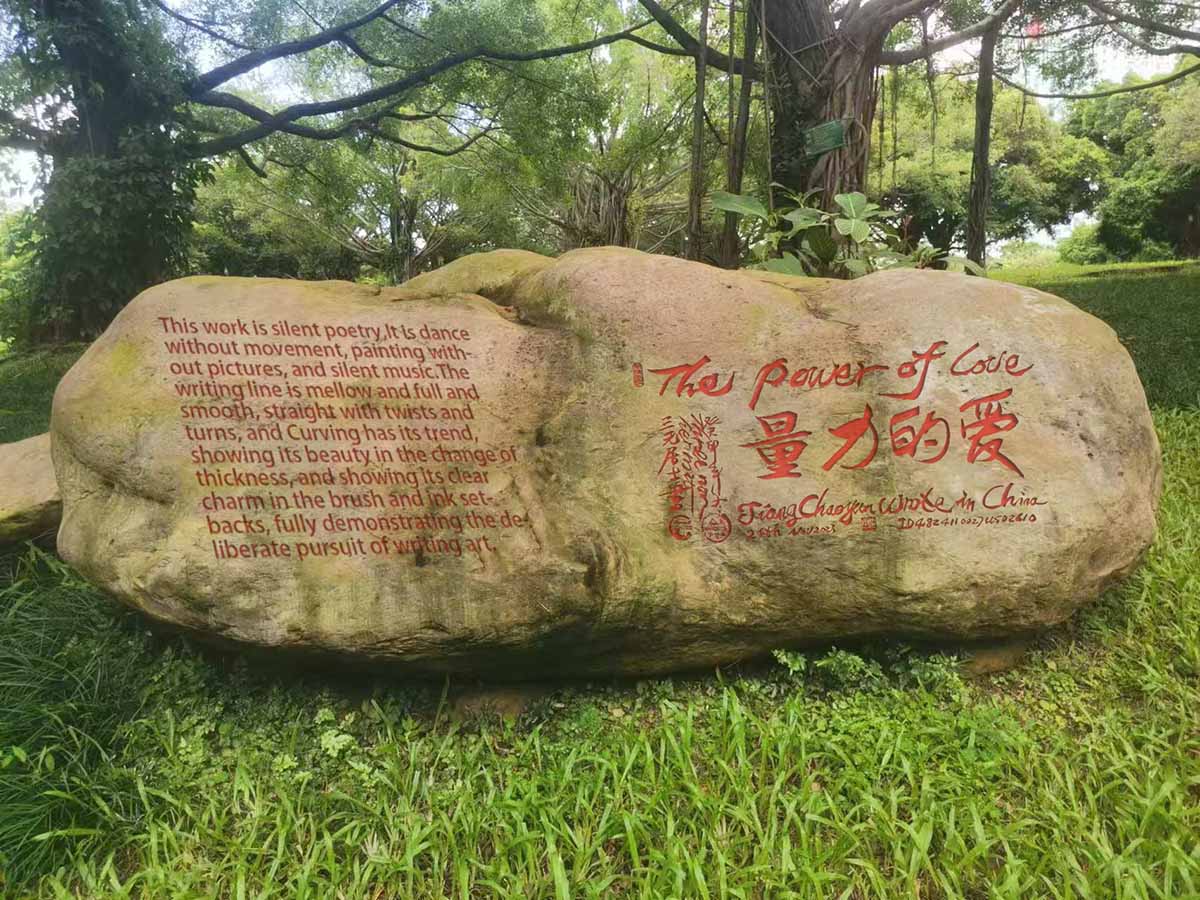 This work is silent poetry,It is dance
without movement, painting with-
out pictures, and silent music.The
writing line is mellow and full and
smooth, straight with twists and
turns, and Curving has its trend,
showing its beauty in the change of
thickness, and showing its clear
charm in the brush and ink set-
backs, fully demonstrating the de-
liberate pursuit of writing art.
The power of Love
量力的爱
JiangChaoyun wrote in China